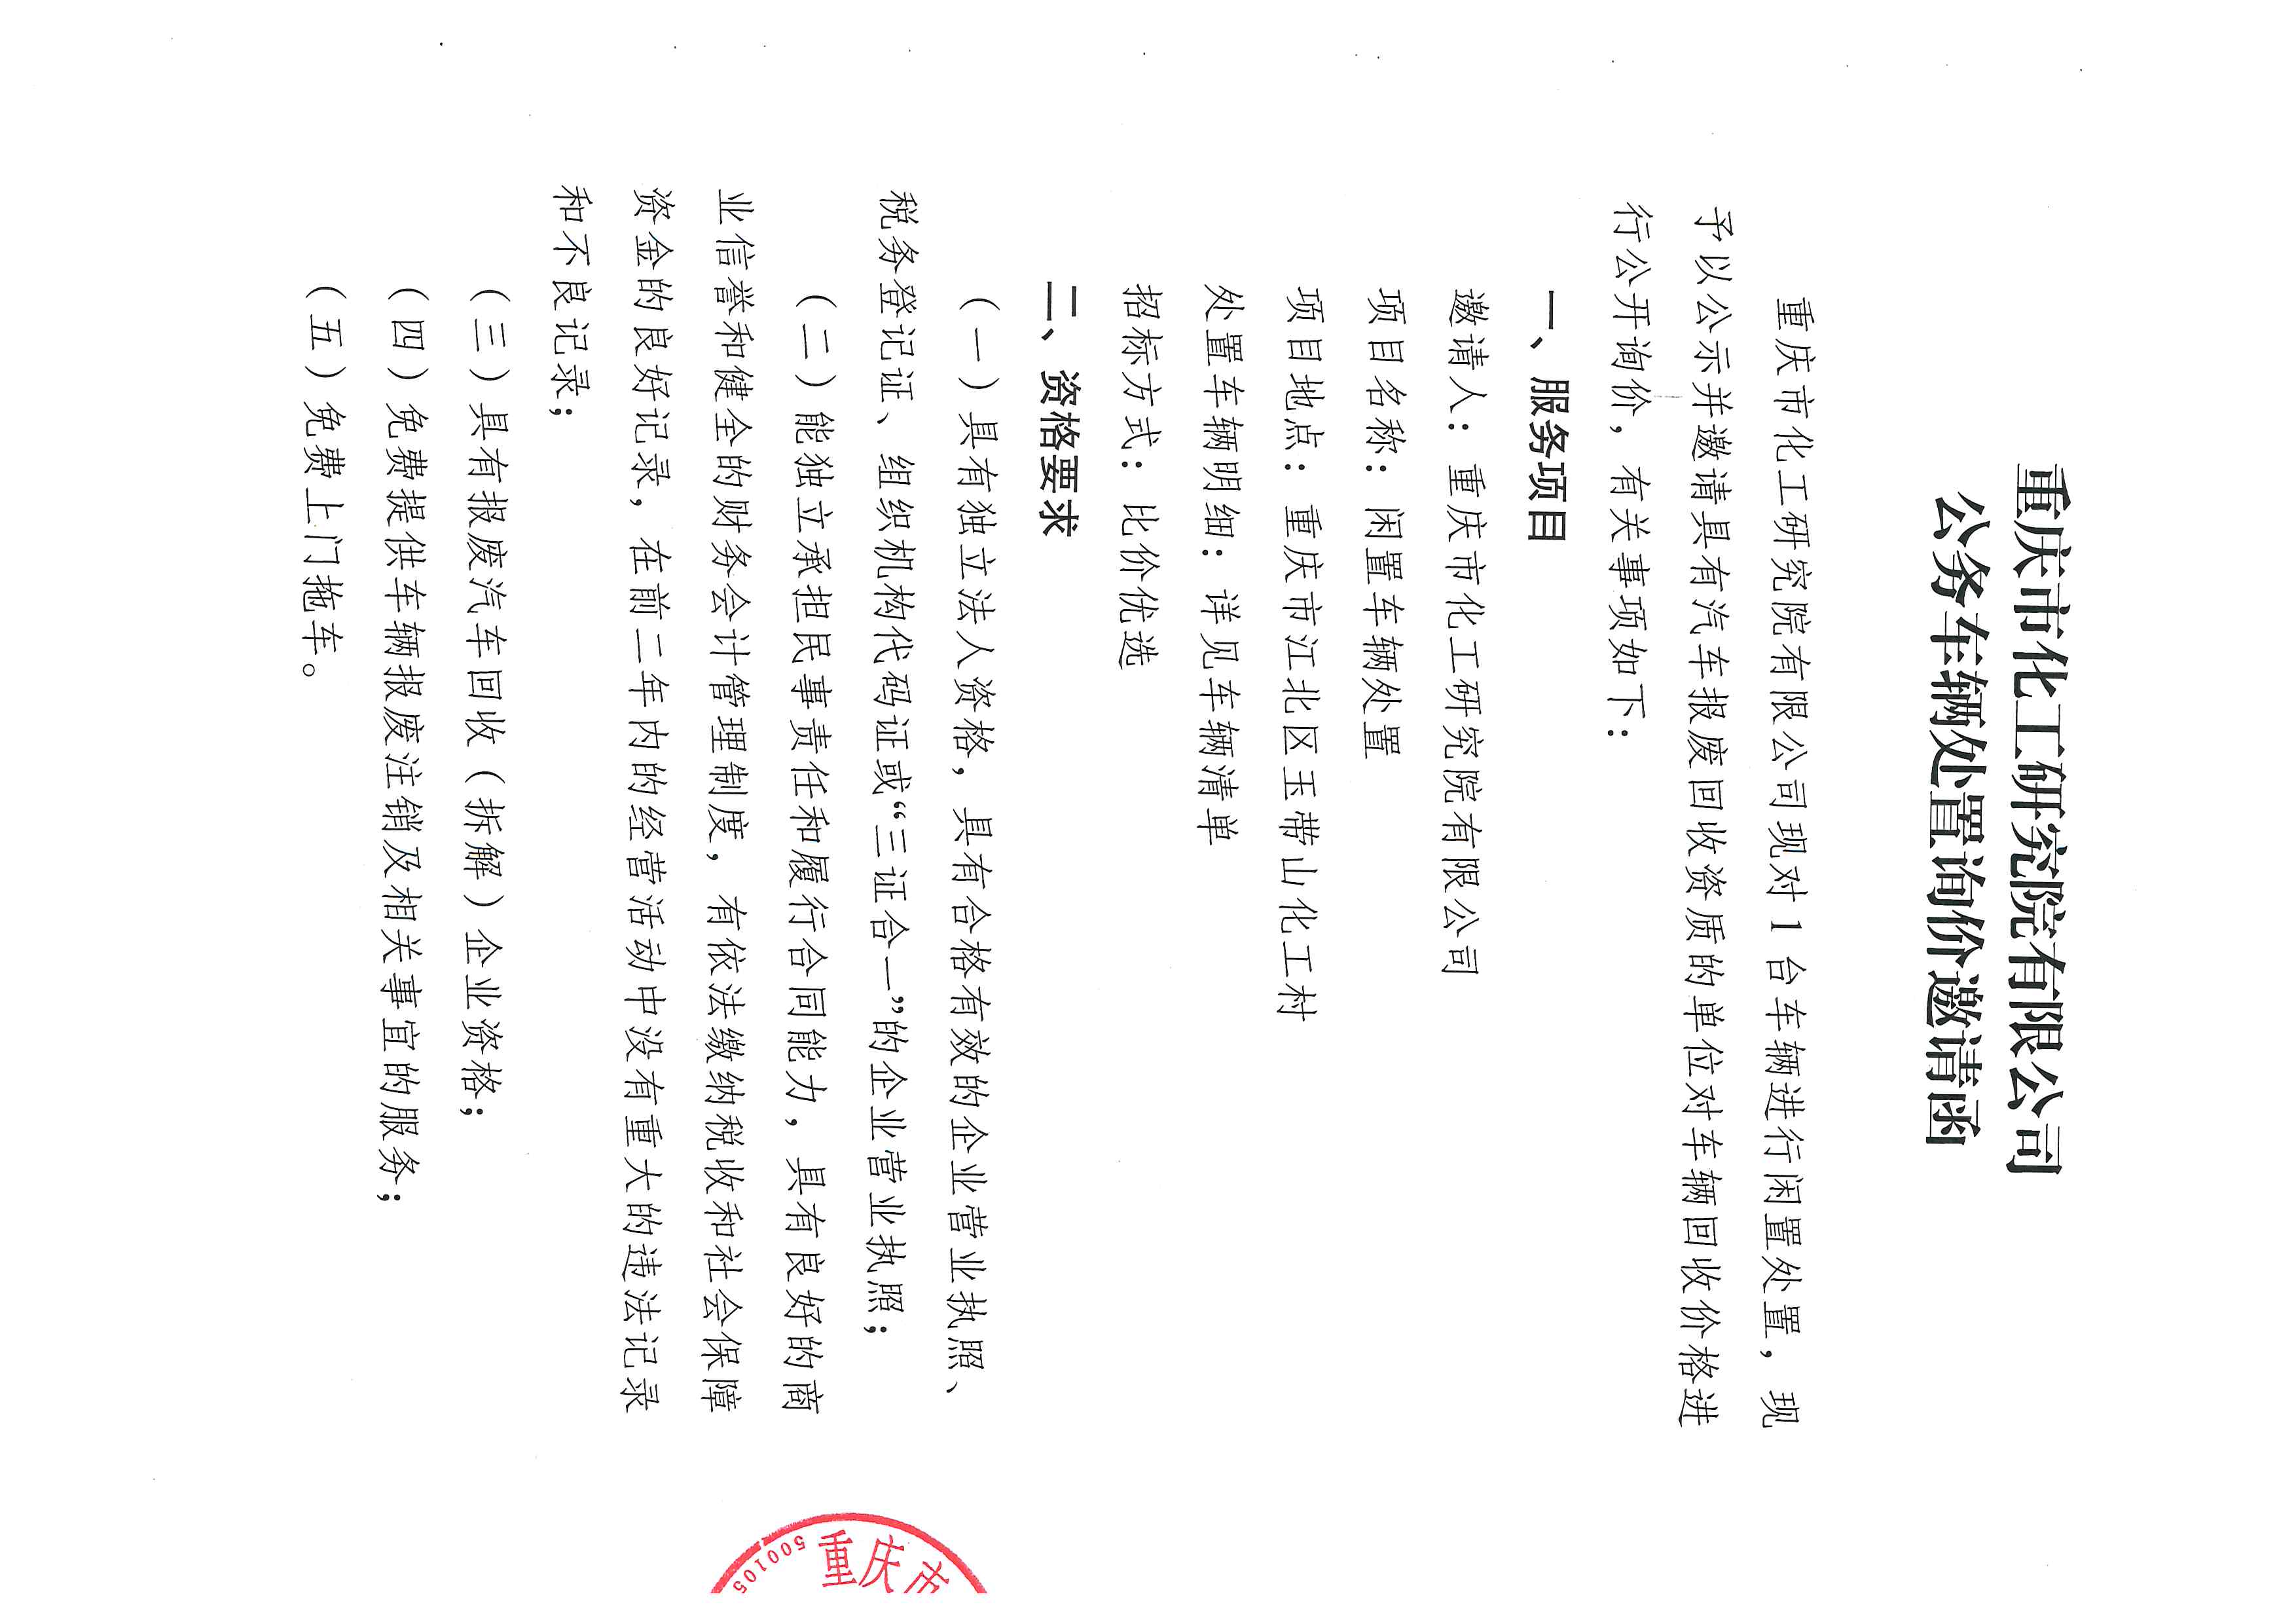 重庆市化工研究院有限公司
公务车辆处置询价邀请函
重庆市化工研究院有限公司现对 1 台车辆进行闲置处置，现
予以公示并邀请具有汽车报废回收资质的单位对车辆回收价格进
行公开询价，有关事项如下：
一、服务项目
邀请人：重庆市化工研究院有限公司
项目名称：闲置车辆处置
项目地点：重庆市江北区玉带山化工村
处置车辆明细：详见车辆清单
招标方式：比价优选
二、资格要求
（一）具有独立法人资格，具有合格有效的企业营业执照、
税务登记证、组织机构代码证或“三证合一”的企业营业执照；
（二）能独立承担民事责任和履行合同能力，具有良好的商
业信誉和健全的财务会计管理制度，有依法缴纳税收和社会保障
资金的良好记录，在前二年内的经营活动中没有重大的违法记录
和不良记录；
（三）具有报废汽车回收（拆解）企业资格；
（四）免费提供车辆报废注销及相关事宜的服务；
（五）免费上门拖车。
重庆市
500105